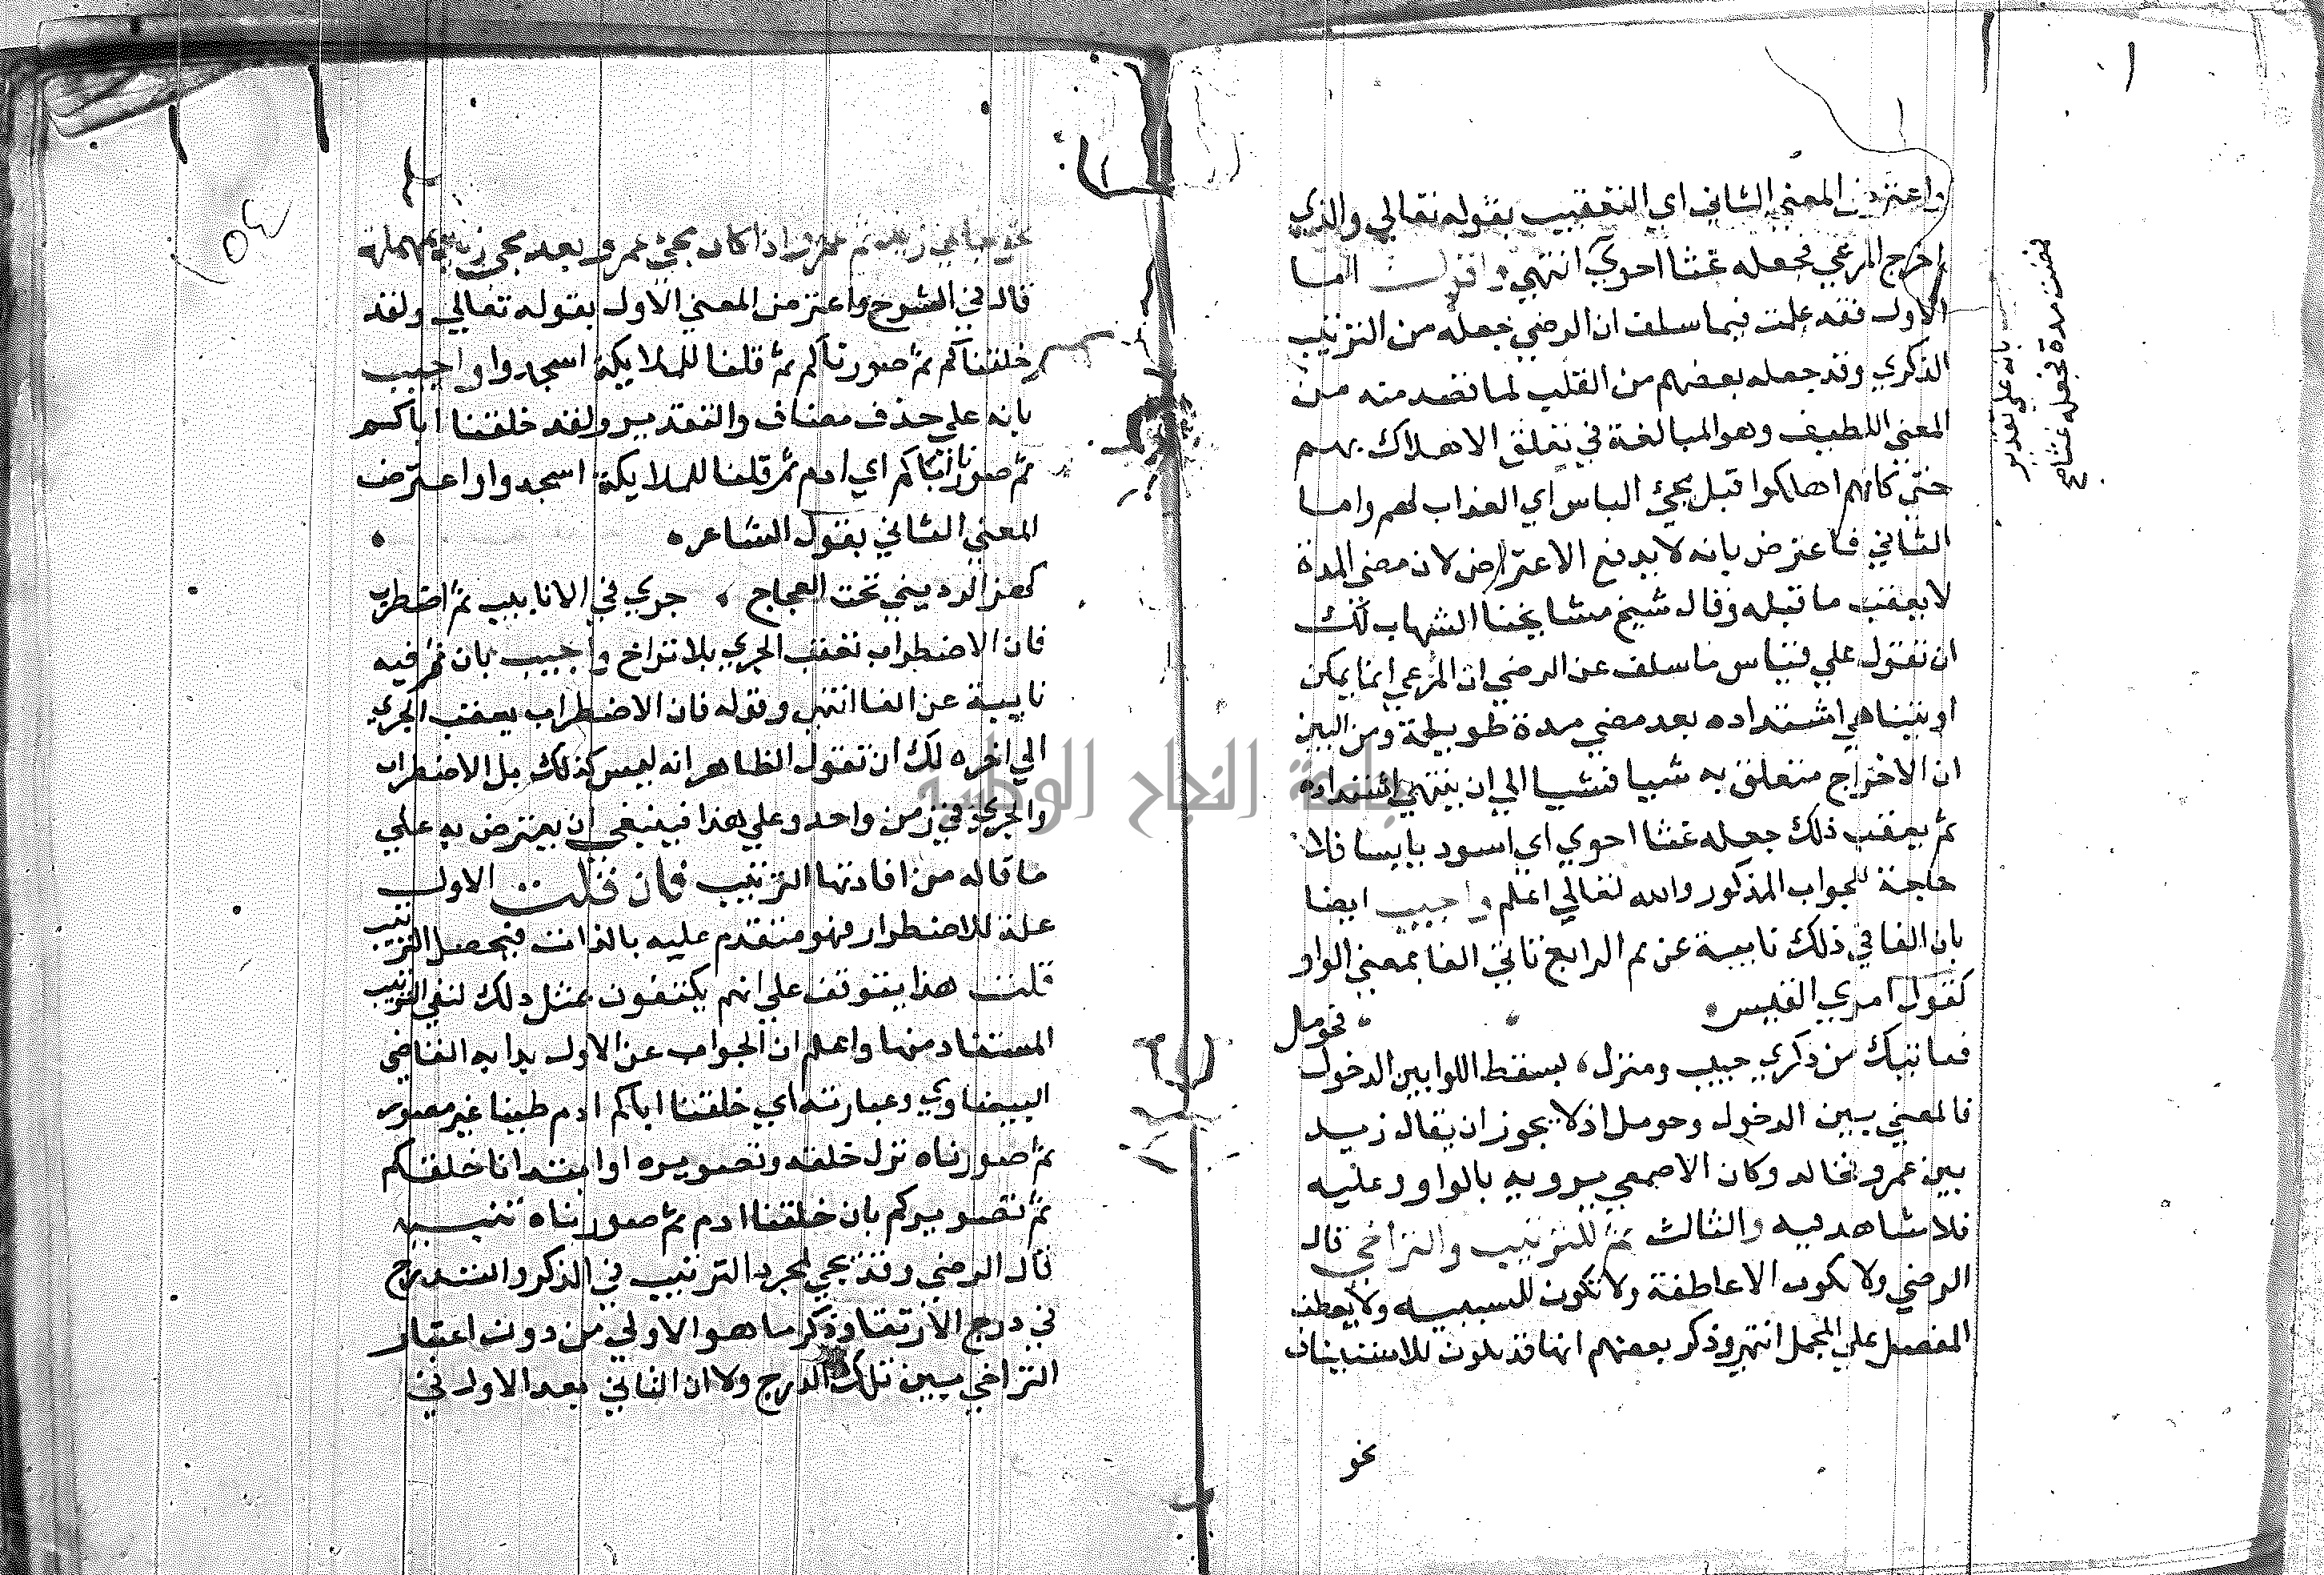 واعترض المعني الثاني اي التعقيب بقوله تعالي والذي
اخرج المرعي فجعله غثا احوي انتهي واقول اما
الاول فقد علمت فيما سلف ان الرضي جعله من الترتيب
الذكري وقد جعله بعضهم من القلب لما تقدمته من
المعني اللطيف وهو المبالغة في تعلق الاهلاك بهم
حتي كانهم اهلكوا قبل مجئ الباس اي العذاب لهم واما
الثاني فاعترض بانه لا يدفع الاعتراض لان مضي المدة
لا يعقب ما قبله وقال شيخ مشايخنا الشهاب لك
ان تقول علي قياس ما سلف عن الرضي ان المرعي انما يمكن
او يتناهي اشتداده بعد مضي مدة طويلة ومن البين
ان الاخراج متعلق به شيا فشيا الي ان ينتهي اشتداده
ثم يعقب ذلك جعله غثا احوي اي اسود يابسا فلا
حاجة للجواب المذكور والله تعالي اعلم واجيب ايضا
بان الفا في ذلك نايبة عن ثم الرابع تاتي الفا بمعني الواو
كقول امري القيس
قفا نبك من ذكري حبيب ومنزل بسقط اللوا بين الدخول فحومل
فالمعني بين الدخول وحومل اذ لا يجوز ان يقال زيد
بين عمرو فخالد وكان الاصمعي يرويه بالواو وعليه
فلا شاهد فيه والثالث ثم للترتيب والتراخي قال
الرضي ولا تكون الا عاطفة ولا تكون للسببيه ولا يعطف
المفصل علي المجمل انتهي وذكر بعضهم انها قد تكون للاستيناف
نحو
بانه علي تقدير
فمضت مدة فجعله غثا صح
٥٤
نحو جاني زيد ثم عمرو اذا كان مجئ عمرو بعد مجئ زيد بمهملة
قال في الشرح واعترض المعني الاول بقوله تعالي ولقد
خلقناكم ثم صورناكم ثم قلنا للملايكة اسجدوا واجيب
بانه علي حذف مضاف والتقدير ولقد خلقنا اباكم
ثم صورنا اباكم اي ادم ثم قلنا للملايكة اسجدوا واعترض
المعني الثاني بقول الشاعر
كهز الرديني تحت العجاج جري في الانابيب ثم اضطرب
فان الاضطراب تعقب الجري بلا تراخ واجيب بان ثم فيه
نايبة عن الفا انتهي وقوله فان الاضطراب يعقب الجري
الي اخره لك ان تقول الظاهر انه ليس كذلك بل الاضطراب
والجري في زمن واحد وعلي هذا فينبغي ان يعترض به علي
ما قاله من افادتها الترتيب فان قلت الاول
علة للاضطراب فهو متقدم عليه بالذات فيحصل الترتيب
قلت هذا يتوقف علي انهم يكتفون بمثل ذلك لنفي الترتيب
المستفاد منها واعلم ان الجواب عن الاول بدا به القاضي
البيضاوي وعبارته اي خلقنا اباكم ادم طينا غير مصور
ثم صورناه نزل خلقه وتصويره او ابتدانا خلقكم
ثم تصويركم بان خلقنا ادم ثم صورناه تنبيه
قال الرضي وقد يجي لمجرد الترتيب في الذكر والتدرج
في درج الارتقا وذكر ما هو الاولي من دون اعتبار
التراخي بين تلك الدرج ولا ان الثاني بعد الاول في